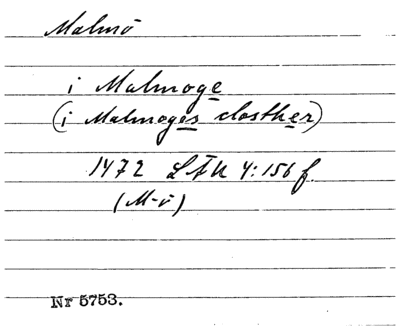 Malmö
i Malmoge
(i Malmoges closther)
1472 LÄU 4:156 f.
(M-ö)
Nr 5753.